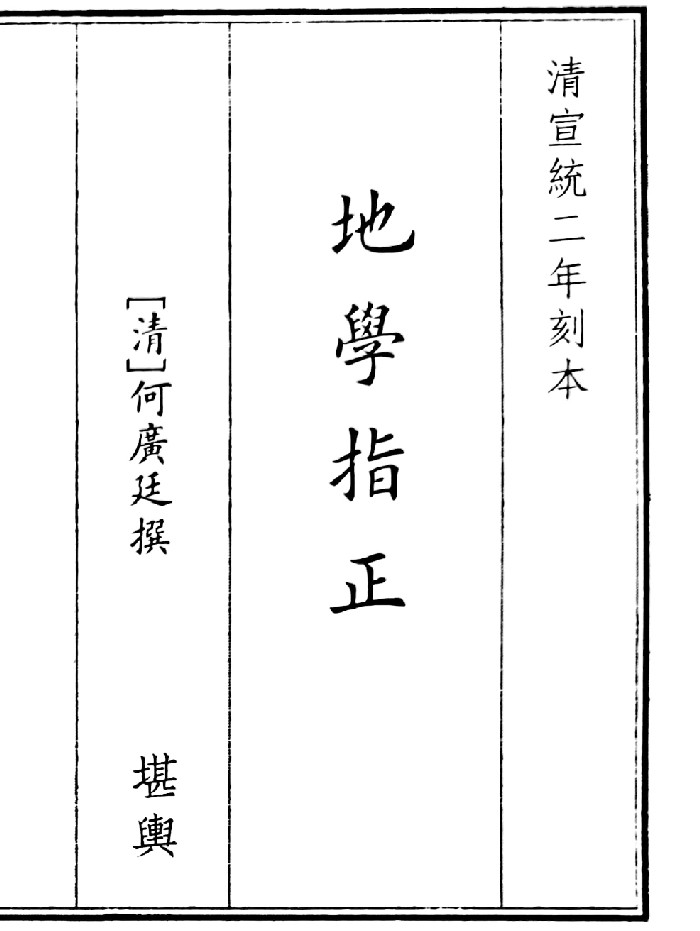 清宣統二年刻本
地學指正
[清]何廣廷撰
堪輿